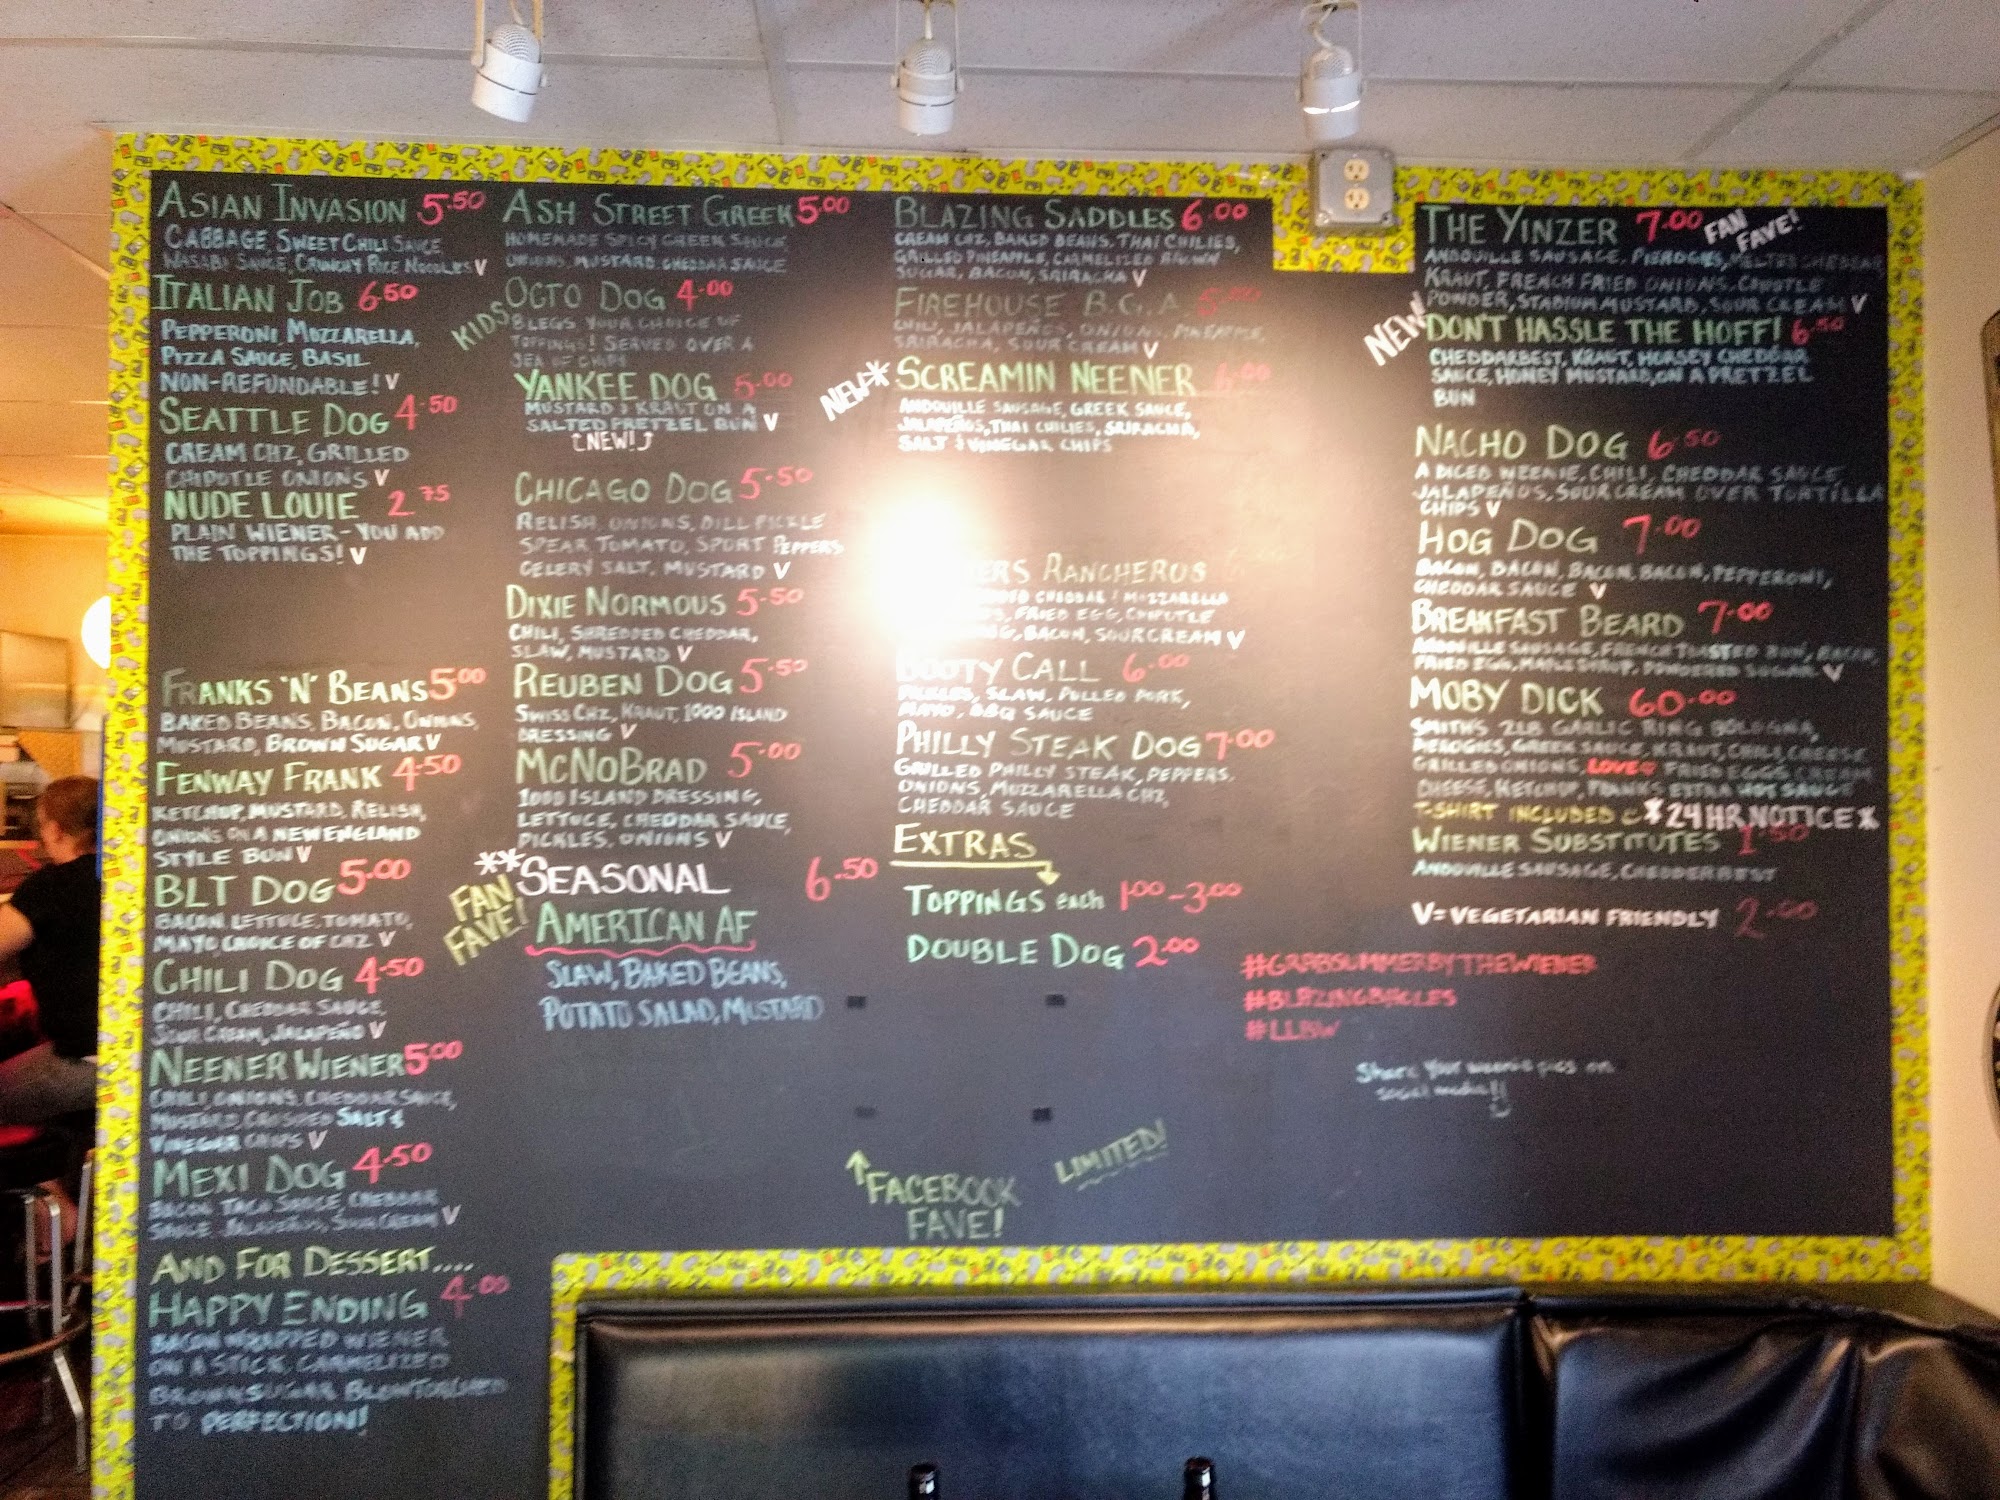 ASIAN INVASION 5.50
CABBAGE, SWEET CHILI SAUCE
WASABI SAUCE, CRUNCHY RICE NOODLES V
ITALIAN JOB 6.50
PEPPERONI, MOZZARELLA,
PIZZA SAUCE, BASIL
NON-REFUNDABLE! V
SEATTLE DOG 4.50
CREAM CHZ, GRILLED
CHIPOTLE ONIONS V
NUDE LOUIE 2.75
PLAIN WIENER - YOU ADD
THE TOPPINGS! V
FRANKS 'N' BEANS 5.00
BAKED BEANS, BACON, ONIONS,
MUSTARD, BROWN SUGAR V
FENWAY FRANK 4.50
KETCHUP, MUSTARD, RELISH,
ONIONS ON A NEW ENGLAND
STYLE BUN V
BLT DOG 5.00
BACON, LETTUCE, TOMATO,
MAYO, CHOICE OF CHZ V
CHILI DOG 4.50
CHILI, CHEDDAR SAUCE,
SOUR CREAM, JALAPEÑO V
NEENER WIENER 5.00
CHILI, ONIONS, CHEDDAR SAUCE,
MUSTARD, CRUSHED SALT &
VINEGAR CHIPS V
MEXI DOG 4.50
BACON, TACO SAUCE, CHEDDAR
SAUCE, JALAPEÑOS, SOUR CREAM V
AND FOR DESSERT....
HAPPY ENDING 4.00
BACON WRAPPED WIENER
ON A STICK, CARMELIZED
BROWN SUGAR BLOWTORCHED
TO PERFECTION!
ASH STREET GREEK 5.00
HOMEMADE SPICY GREEK SAUCE
ONIONS, MUSTARD, CHEDDAR SAUCE
KIDS
OCTO DOG 4.00
8 LEGS, YOUR CHOICE OF
TOPPINGS! SERVED OVER A
SEA OF CHIPS
YANKEE DOG 5.00
MUSTARD & KRAUT ON A
SALTED PRETZEL BUN V
NEW!
CHICAGO DOG 5.50
RELISH, ONIONS, DILL PICKLE
SPEAR, TOMATO, SPORT PEPPERS
CELERY SALT, MUSTARD V
DIXIE NORMOUS 5.50
CHILI, SHREDDED CHEDDAR,
SLAW, MUSTARD V
REUBEN DOG 5.50
SWISS CHZ, KRAUT, 1000 ISLAND
DRESSING V
MCNOBRAD 5.00
1000 ISLAND DRESSING,
LETTUCE, CHEDDAR SAUCE,
PICKLES, ONIONS V
**SEASONAL 6.50
FAN
FAVE!
AMERICAN AF
SLAW, BAKED BEANS,
POTATO SALAD, MUSTARD
BLAZING SADDLES 6.00
CREAM CHZ, BAKED BEANS, THAI CHILIES,
GRILLED PINEAPPLE, CARMELIZED BROWN
SUGAR, BACON, SRIRACHA V
FIREHOUSE B.G.A. 5.00
CHILI, JALAPEÑOS, ONIONS, PINEAPPLE,
SRIRACHA, SOUR CREAM V
NEW*
SCREAMIN NEENER 6.00
ANDOUILLE SAUSAGE, GREEK SAUCE,
JALAPEÑOS, THAI CHILIES, SRIRACHA,
SALT & VINEGAR CHIPS
RANCHEROS
CHEDDAR & MOZZARELLA
FRIED EGG, CHIPOTLE
BACON, SOUR CREAM V
BOOTY CALL 6.00
PICKLES, SLAW, PULLED PORK,
MAYO, BBQ SAUCE
PHILLY STEAK DOG 7.00
GRILLED PHILLY STEAK, PEPPERS,
ONIONS, MOZZARELLA CHZ,
CHEDDAR SAUCE
EXTRAS
TOPPINGS each 1.00-3.00
DOUBLE DOG 2.00
FACEBOOK
FAVE!
LIMITED!
THE YINZER 7.00
FAN
FAVE!
ANDOUILLE SAUSAGE, PIEROGIES, MELTED CHEDDAR,
KRAUT, FRENCH FRIED ONIONS, CHIPOTLE
POWDER, STADIUM MUSTARD, SOUR CREAM V
NEW!
DON'T HASSLE THE HOFF! 6.50
CHEDDARBEST, KRAUT, HORSEY CHEDDAR
SAUCE, HONEY MUSTARD, ON A PRETZEL
BUN
NACHO DOG 6.50
A DICED WEENIE, CHILI, CHEDDAR SAUCE,
JALAPEÑOS, SOUR CREAM OVER TORTILLA
CHIPS V
HOG DOG 7.00
BACON, BACON, BACON, BACON, PEPPERONI,
CHEDDAR SAUCE V
BREAKFAST BEARD 7.00
ANDOUILLE SAUSAGE, FRENCH TOASTED BUN, BACON,
FRIED EGG, MAPLE SYRUP, POWDERED SUGAR V
MOBY DICK 60.00
SMITH'S 2LB GARLIC RING BOLOGNA,
PIEROGIES, GREEK SAUCE, KRAUT, CHILI, CHEESE,
GRILLED ONIONS, LOVE♡ FRIED EGGS, CREAM
CHEESE, KETCHUP, FRANKS EXTRA HOT SAUCE
T-SHIRT INCLUDED *24 HR NOTICE*
WIENER SUBSTITUTES 1.50
ANDOUILLE SAUSAGE, CHEDDERBEST
V=VEGETARIAN FRIENDLY 2.00
#GRABSUMMERBYTHEWIENER
#BLAZINGBHOLES
#LLBW
Share your weenie pics on
social media!!